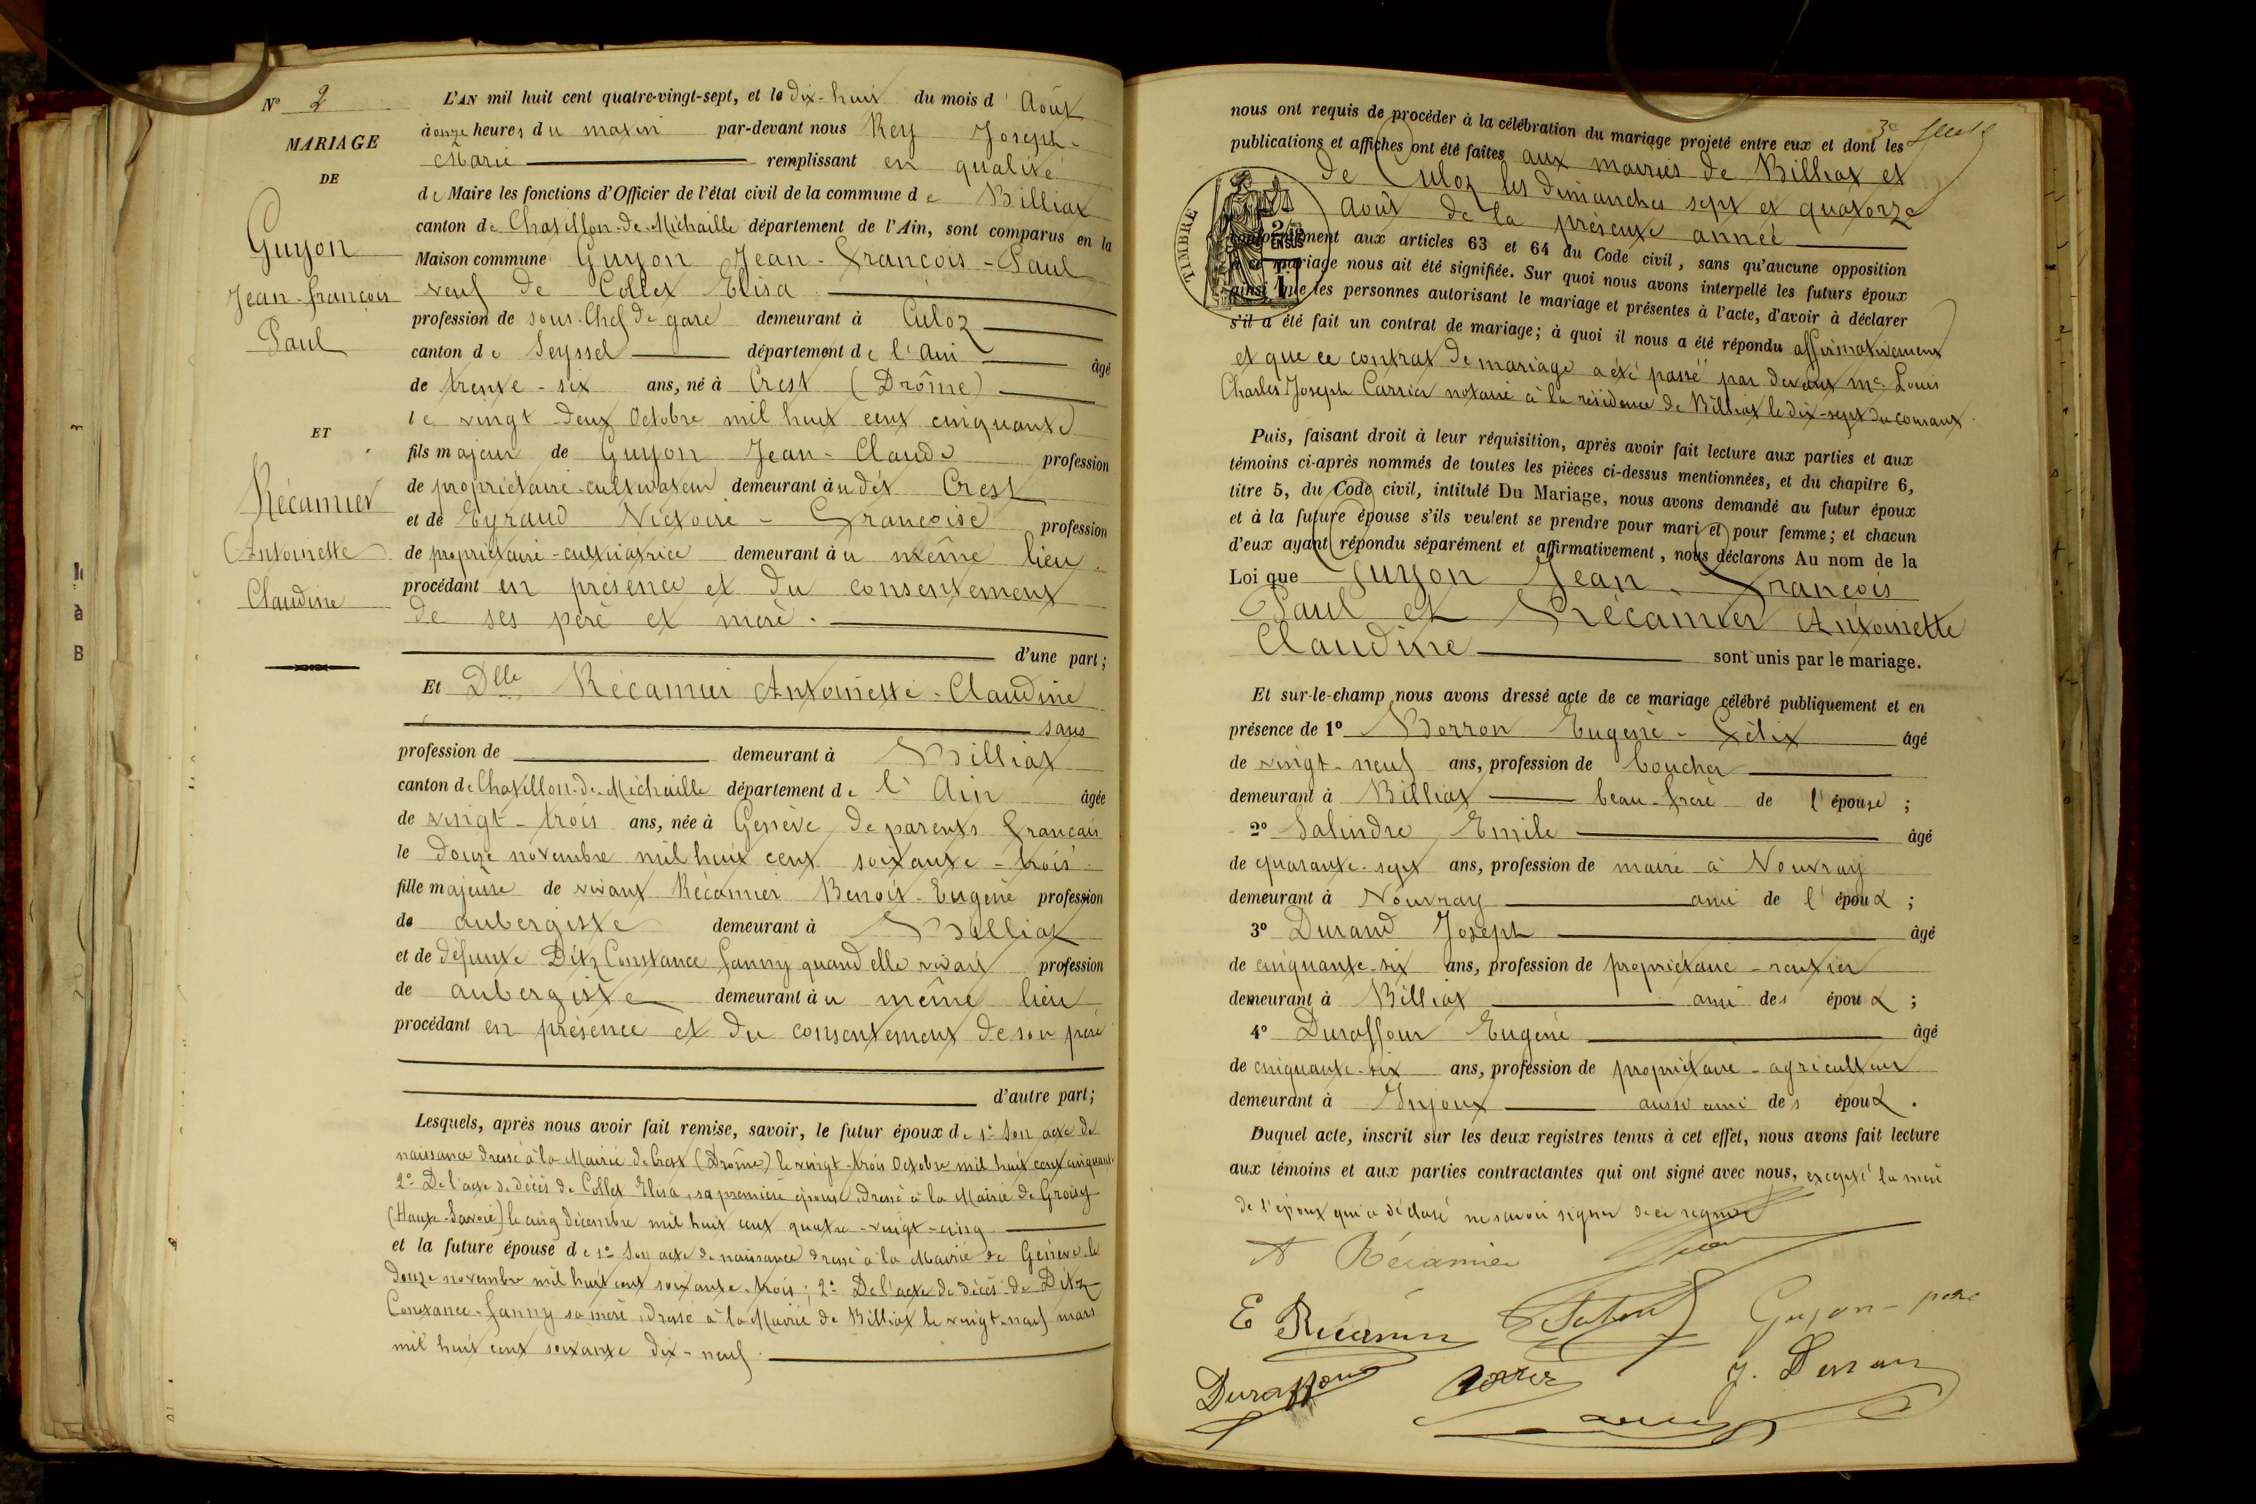 N° 2
MARIAGE
DE
Guyon
Jean-françois
Paul
ET
Récamier
Antoinette
Claudine
L'AN mil huit cent quatre-vingt-sept, et le dix-huit du mois d'Août
à onze heures du matin par-devant nous Rey Joseph-
Marie remplissant en qualité
de Maire les fonctions d'Officier de l'état civil de la commune de Billiat
canton de Chatillon-de-Michaille département de l'Ain, sont comparus en la
Maison commune Guyon Jean-François-Paul
veuf de Collet Elisa
profession de sous-Chef de gare demeurant à Culoz
canton de Seyssel département de l'Ain âgé
de trente-six ans, né à Crest (Drôme)
le vingt-deux Octobre mil huit cent cinquante
fils majeur de Guyon Jean-Claude profession
de propriétaire-cultivateur demeurant àu dit Crest
et de Eyraud Victoire-Françoise profession
de propriétaire-cultivatrice demeurant àu même lieu
procédant en présence et du consentement
de ses père et mère.
d'une part;
Et Dlle Récamier Antoinette-Claudine
sans
profession de demeurant à Billiat
canton de Chatillon-de-Michaille département de l'Ain âgée
de vingt-trois ans, née à Genève de parents français
le douze novembre mil huit cent soixante-trois
fille majeure de vivant Récamier Benoit-Eugène profession
de aubergiste demeurant à Billiat
et de défunte Ditz Constance fanny quand elle vivait profession
de aubergiste demeurant àu même lieu
procédant en présence et du consentement de son père
d'autre part;
Lesquels, après nous avoir fait remise, savoir, le futur époux de 1° Son acte de
naissance dressé à la Mairie de Crest (Drôme) le vingt-trois Octobre mil huit cent cinquante
2° De l'acte de décès de Collet Elisa, sa première épouse, dressé à la Mairie de Groisy
(Haute-Savoie) le cinq décembre mil huit cent quatre-vingt-cinq
et la future épouse de 1° Son acte de naissance dressé à la Mairie de Genève le
douze novembre mil huit cent soixante-trois; 2° De l'acte de décès de Ditz
Constance-fanny sa mère, dressé à la Mairie de Billiat le vingt-neuf mars
mil huit cent soixante dix-neuf.
3e
nous ont requis de procéder à la célébration du mariage projeté entre eux et dont les
publications et affiches ont été faites aux mairies de Billiat et
de Culoz les dimanches sept et quatorze
Août de la présente année
TIMBRE
conformément aux articles 63 et 64 du Code civil, sans qu'aucune opposition
à ce mariage nous ait été signifiée. Sur quoi nous avons interpellé les futurs époux
ainsi que les personnes autorisant le mariage et présentes à l'acte, d'avoir à déclarer
s'il a été fait un contrat de mariage; à quoi il nous a été répondu affirmativement
et que ce contrat de mariage a été passé par devant Me Louis
Charles Joseph Carrier notaire à la résidence de Billiat le dix-sept du courant.
Puis, faisant droit à leur réquisition, après avoir fait lecture aux parties et aux
témoins ci-après nommés de toutes les pièces ci-dessus mentionnées, et du chapitre 6,
titre 5, du Code civil, intitulé Du Mariage, nous avons demandé au futur époux
et à la future épouse s'ils veulent se prendre pour mari et pour femme; et chacun
d'eux ayant répondu séparément et affirmativement, nous déclarons Au nom de la
Loi que Guyon Jean-François
Paul et Récamier Antoinette
Claudine sont unis par le mariage.
Et sur-le-champ nous avons dressé acte de ce mariage célébré publiquement et en
présence de 1° Borron Eugène-Félix âgé
de vingt-neuf ans, profession de boucher
demeurant à Billiat beau-frère de l'épouse;
2° Salindre Emile âgé
de quarante-sept ans, profession de maire à Vouvray
demeurant à Vouvray ami de l'époux;
3° Durand Joseph âgé
de cinquante-six ans, profession de propriétaire-rentier
demeurant à Billiat ami des époux;
4° Duraffour Eugène âgé
de cinquante-six ans, profession de propriétaire-agriculteur
demeurant à Injoux aussi ami des époux.
Duquel acte, inscrit sur les deux registres tenus à cet effet, nous avons fait lecture
aux témoins et aux parties contractantes qui ont signé avec nous, excepté la mère
de l'époux qui a déclaré ne savoir signer de ce requise
A Récamier
E Récamier
Guyon-père
Duraffour